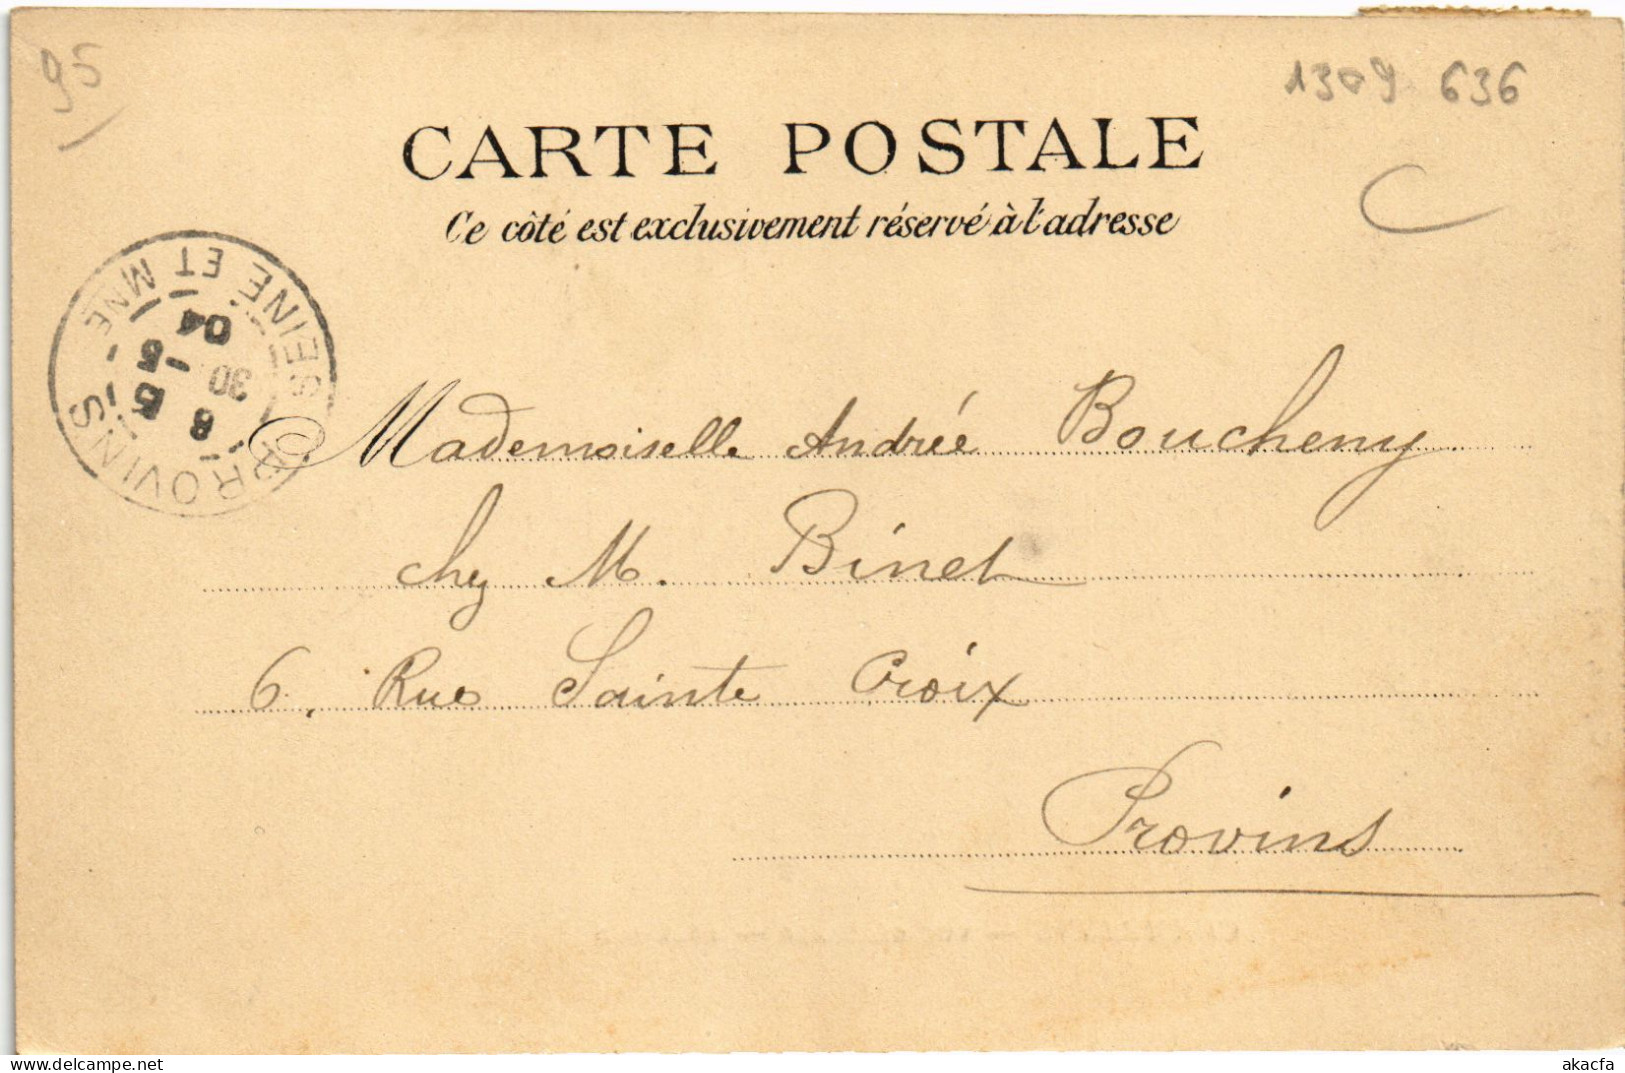 95
1309 636
CARTE POSTALE
Ce côté est exclusivement réservé à l'adresse
C
PROVINS
SEINE ET MNE
8 30
5 - 5
04
Mademoiselle Andrée Boucheny
chez M. Binet
6, Rue Sainte Croix
Provins
akacfa
www.delcampe.net